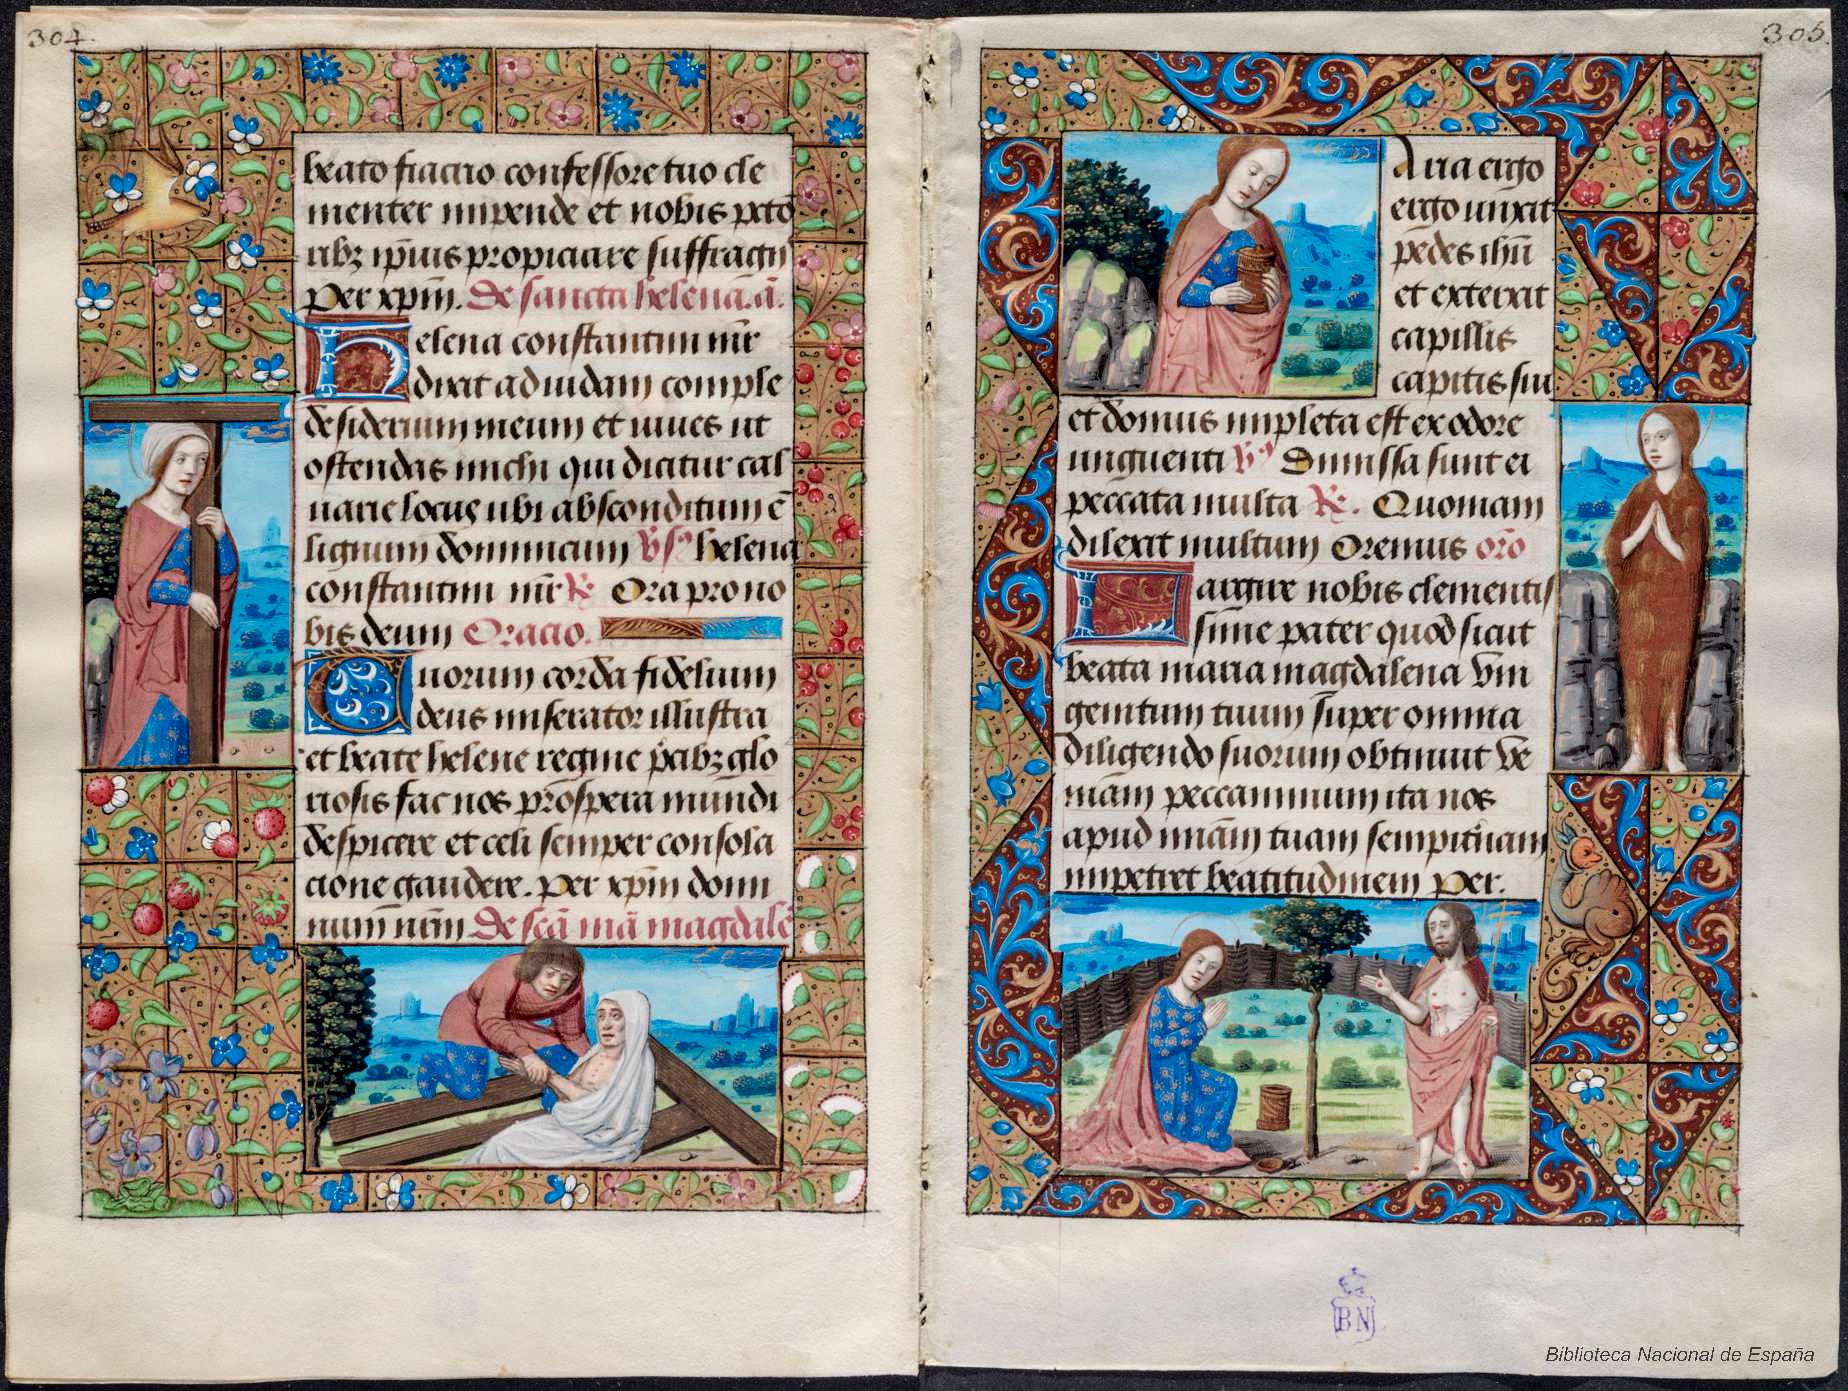 304.
beato fiacrio confessore tuo cle
menter impende et nobis pctō
ribꝫ ip̄ius propiciare suffragiis
Per xp̄m. De sancta helena. ā.
Helena constantini mr̄
dixit ad iudam comple
desiderium meum et viues ut
ostendas michi qui dicitur cal
uarie locus ubi absconditum ē
lignum dominicum v̄s helena
constantini mr̄ R̄. Ora pro no
bis deum Oracio.
Quorum corda fidelium
deus miserator illustra
et beate helene regine p̄cibꝫ glo
riosis fac nos prospera mundi
despicere et celi semper consola
cione gaudere. Per xp̄m domi
num nr̄m De scā mā magdalē
305.
Maria ergo
ergo unxit
pedes ihū
et extersit
capillis
capitis sui
et domus impleta est ex odore
unguenti v̄s Dimissa sunt ei
peccata multa R̄. Quoniam
dilexit multum Oremus orō
Largire nobis clementis
sime pater quod sicut
beata maria magdalena vni
genitum tuum super omnia
diligendo suorum obtinuit ve
niam peccaminum ita nos
apud mīam tuam sempit̄nam
impetret beatitudinem Per.
BN
Biblioteca Nacional de España